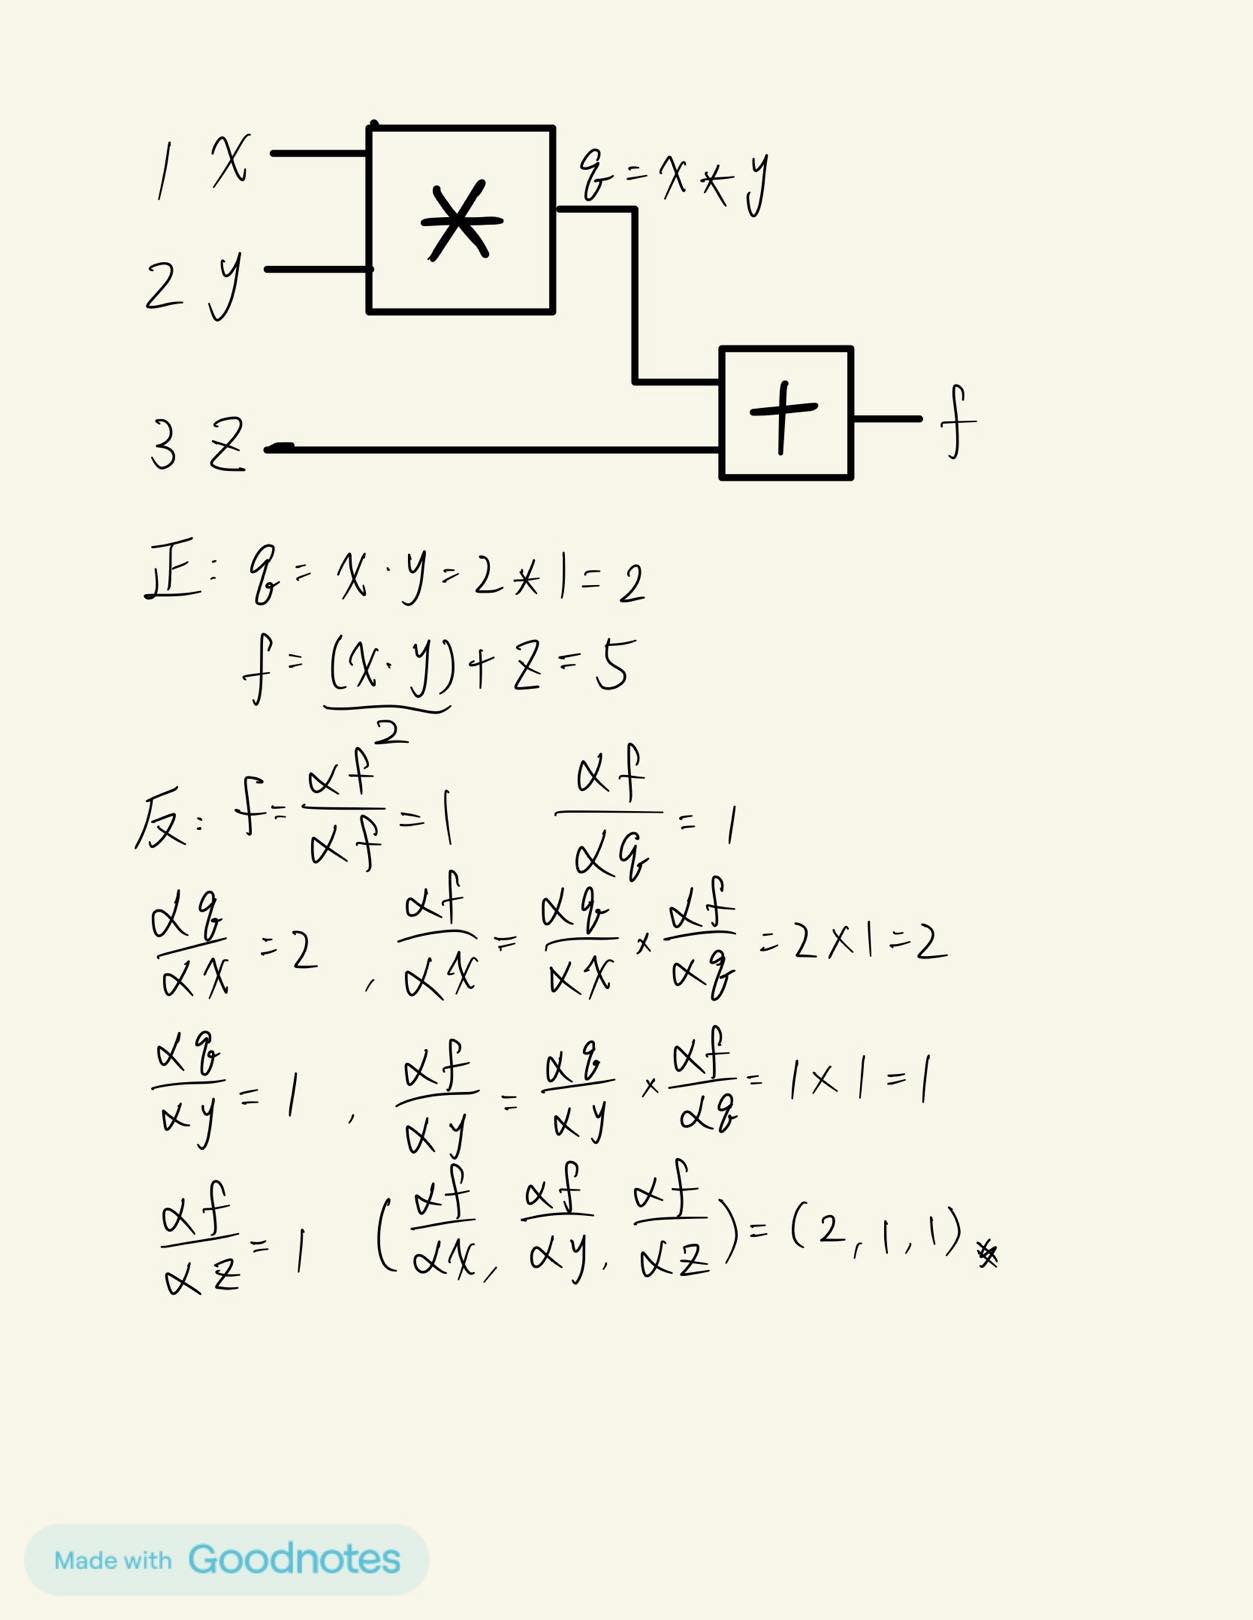 1 x
q = x * y
*
2 y
3 z
+
f
正: q = x · y = 2 * 1 = 2
f = (x · y) + z = 5
2
反: f = αf/αf = 1 αf/αq = 1
αq/αx = 2 , αf/αx = αq/αx × αf/αq = 2 × 1 = 2
αq/αy = 1 , αf/αy = αq/αy × αf/αq = 1 × 1 = 1
αf/αz = 1 (αf/αx, αf/αy, αf/αz) = (2, 1, 1)
Made with Goodnotes